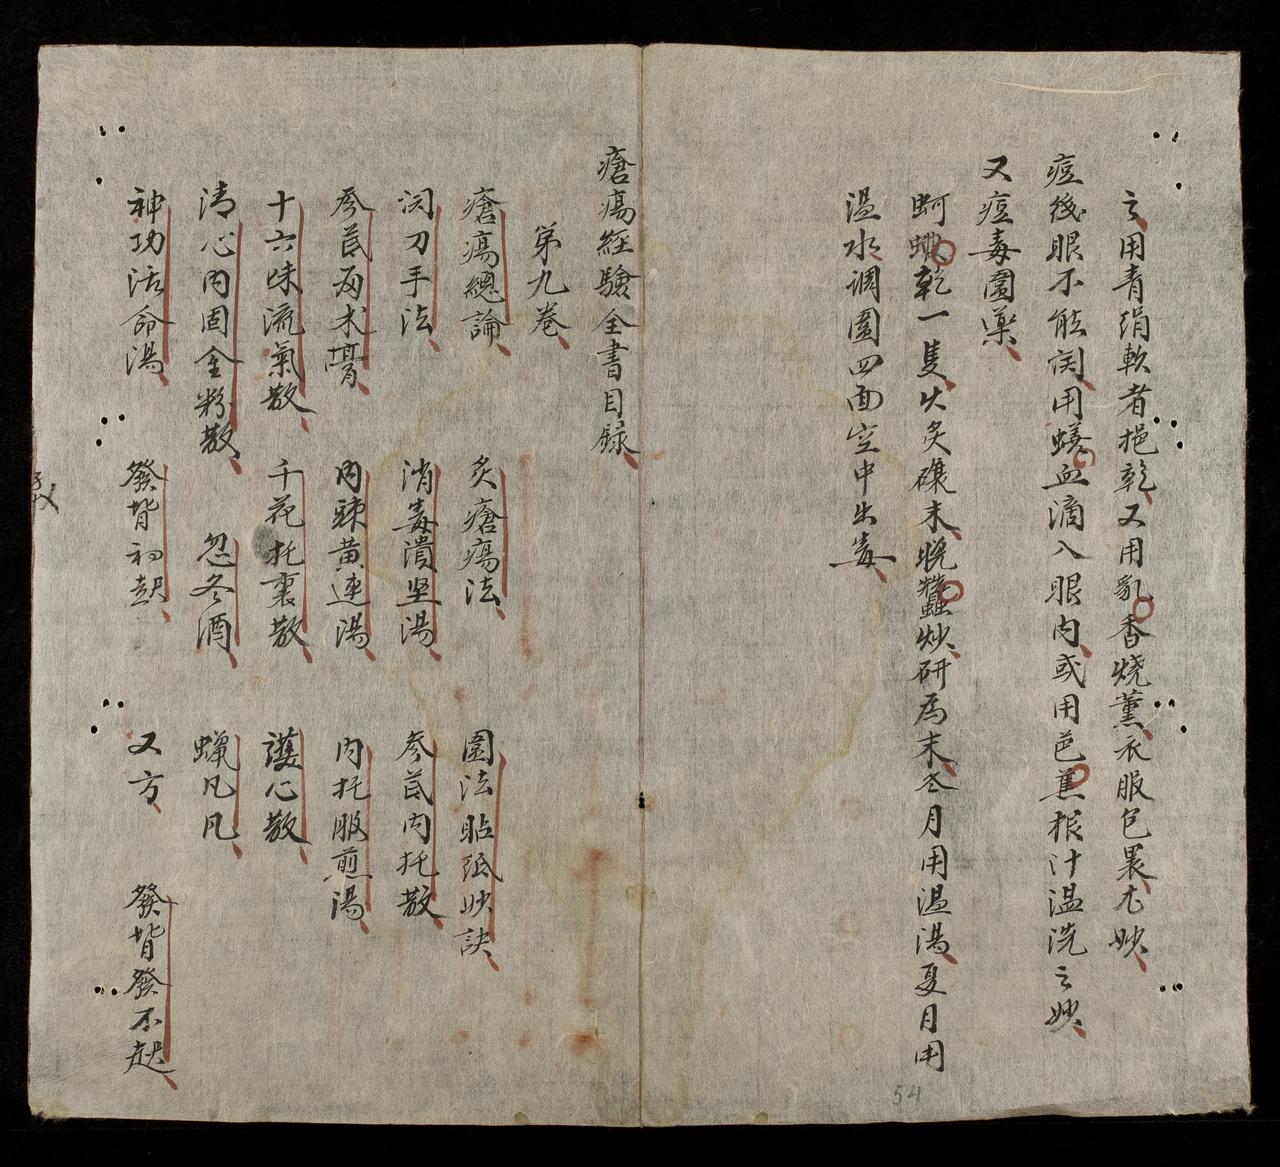 之用青絹軟者挹乾又用乳香燒薰衣服包裹尤妙
痘後眼不能開用蟮血滴入眼內或用芭蕉根汁溫洗之妙
又痘毒圍藥
蚵乾一隻火炙碾末晚蠶炒研為末冬月用溫湯夏月用
溫水調圍四面空中出毒
瘡瘍經驗全書目錄
第九卷
瘡瘍總論 灸瘡瘍法 圍法貼紙妙訣
開刀手法 消毒潰坚湯 參芪內托散
參芪兩术膏 內疎黃連湯 內托服煎湯
十六味流氣散 千花托裏散 護心散
清心內固金粉散 忍冬酒 蠟凡凡
神功活命湯 發背初起 又方 發背發不起
54